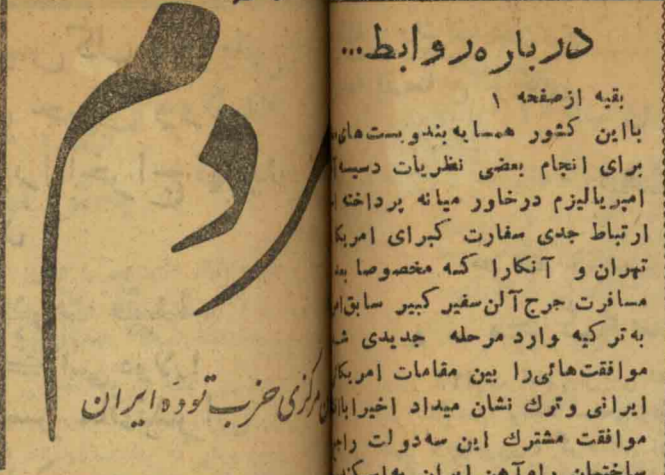 درباره روابط...
بقیه ازصفحه ۱
بااین کشور همسایه بندوبست‌های
برای انجام بعضی نظریات دسیسه
امپریالیزم درخاور میانه پرداخته
ارتباط جدی سفارت کبرای امریک
تهران و آنکارا که مخصوصا بعد
مسافرت جرج آلن سفیر کبیر سابق
به ترکیه وارد مرحله جدیدی
موافقت‌هائی را بین مقامات امریک
ایرانی وترك نشان میداد اخیرا با
موافقت مشترك این سه‌دولت راج
ساختمان راه‌آهن ایران
ردم
مرکزی حزب تودهٔ ایران